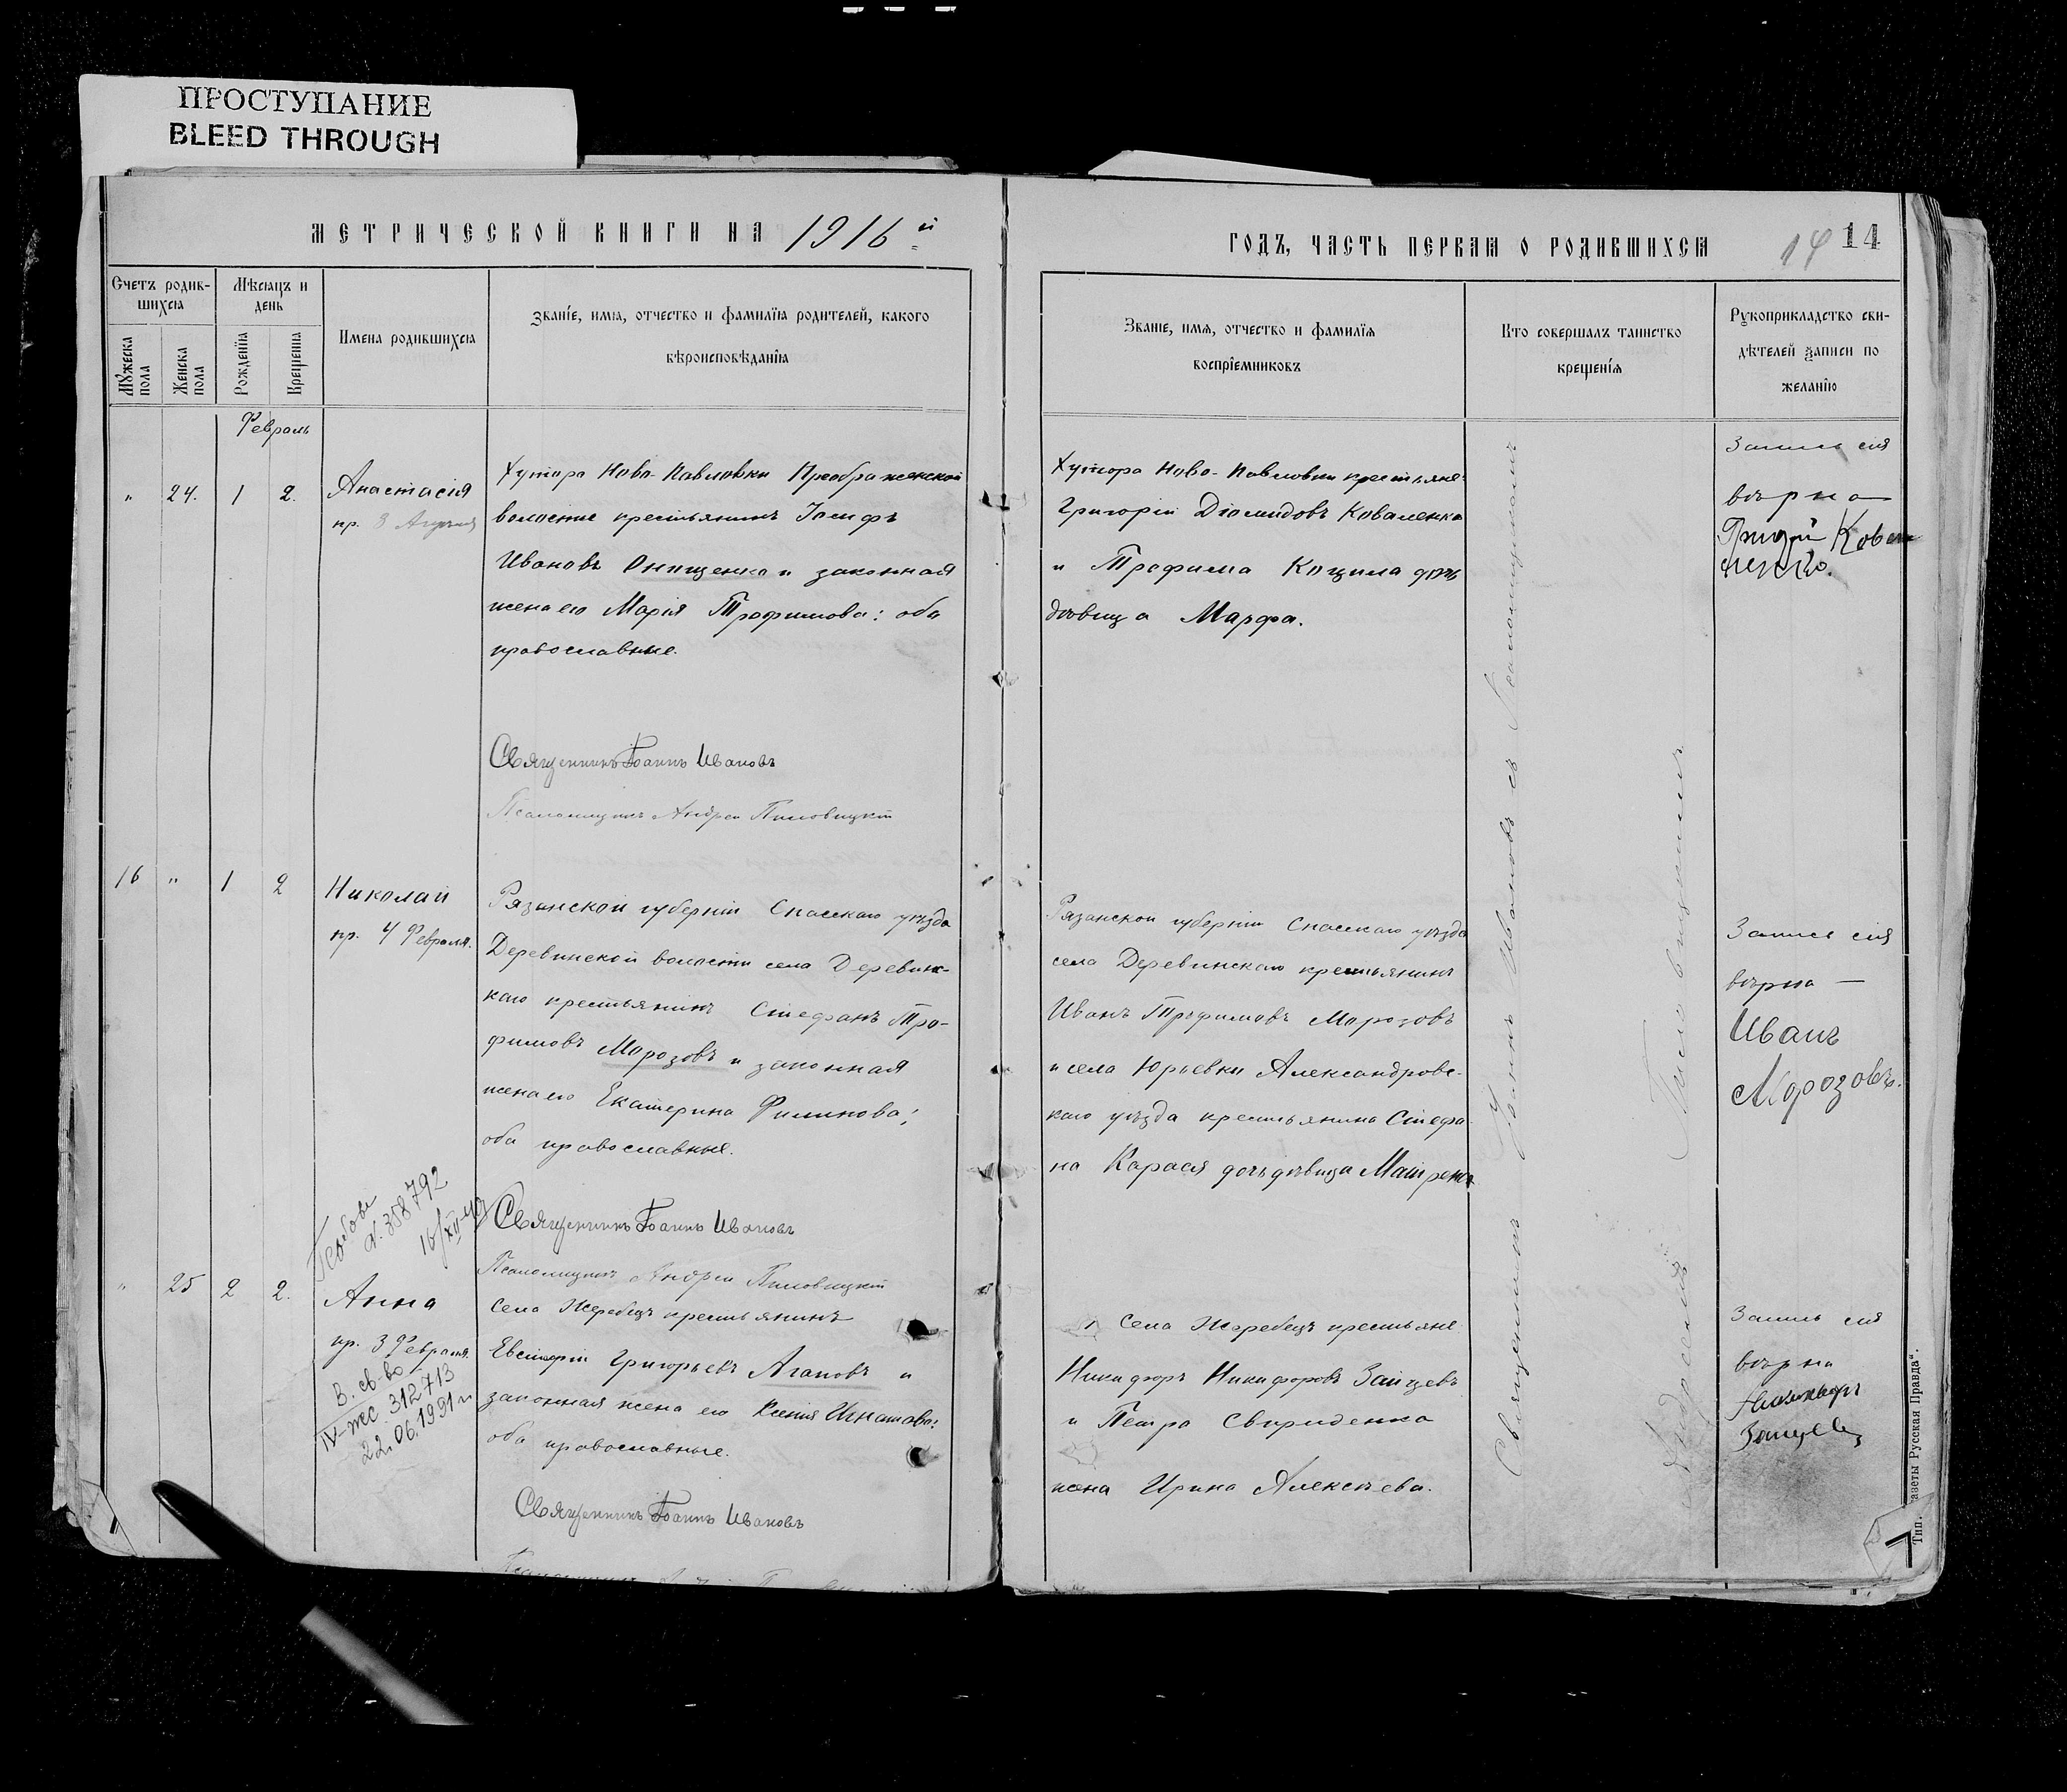 ПРОСТУПАНИЕ
BLEED THROUGH
МЕТРИЧЕСКОЙ КНИГИ НА 1916 й
Счетъ родившихся
Мужеска пола
Женска пола
Мѣсяцъ и день
Рожденія
Крещенія
Имена родившихся
Званіе, имя, отчество и фамилія родителей, какого
вѣроисповѣданія
Февраль
" 24. 1 2.
Анастасія
пр.
Хутора Ново-Павловки Преображенской
волости крестьянинъ Іосифъ
Ивановъ Онищенко и законная
жена его Марія Трофимова: оба
православные.
Священникъ Іоаннъ Ивановъ
Псаломщикъ Андрей
16 " 1 2
Николай
пр. 4 Февраля.
Рязанской губерніи Спасскаго уѣзда
Деревинской волости села Деревин-
каго крестьянинъ Стефанъ Тро-
фимовъ Морозовъ и законная
жена его Екатерина Филипова;
оба православные.
Священникъ Іоаннъ Ивановъ
Псаломщикъ Андрей
358792
" 25 2 2.
Анна
пр. 3 Февраля.
В. св-во
IV-жс. 312713
22.06.1991 г.
Села Жеребецъ крестьянинъ
Евстафій Григорьевъ Агаповъ и
законная жена его Ксенія Игнатова:
оба православные.
Священникъ Іоаннъ Ивановъ
ГОДЪ, ЧАСТЬ ПЕРВАЯ О РОДИВШИХСЯ
14 14
Званіе, имя, отчество и фамилія
воспріемниковъ
Кто совершалъ таинство
крещенія
Рукоприкладство сви-
дѣтелей записи по
желанію
Хутора Ново-Павловки крестьяне:
Григорій Діомидовъ Коваленко
и Трофима Коцила дочь
дѣвица Марфа.
Запись сія
вѣрна
Григорій Ковал
ненко.
Рязанской губерніи Спасскаго уѣзда
села Деревинскаго крестьянинъ
Иванъ Трофимовъ Морозовъ
и села Юрьевки Александровс-
каго уѣзда крестьянина Стефа-
на Карася дочь дѣвица Матрена
Запись сія
вѣрна —
Иванъ
Морозовъ.
Села Жеребецъ крестьяне
Никифоръ Никифоровъ Зайцевъ
и Петра Свириденка
жена Ирина Алексѣева.
Запись сія
вѣрна
Никифоръ
Зайцевъ
Священникъ Іоаннъ Ивановъ съ Псаломщикомъ
Андреемъ
Тип. газеты „Русская Правда“.